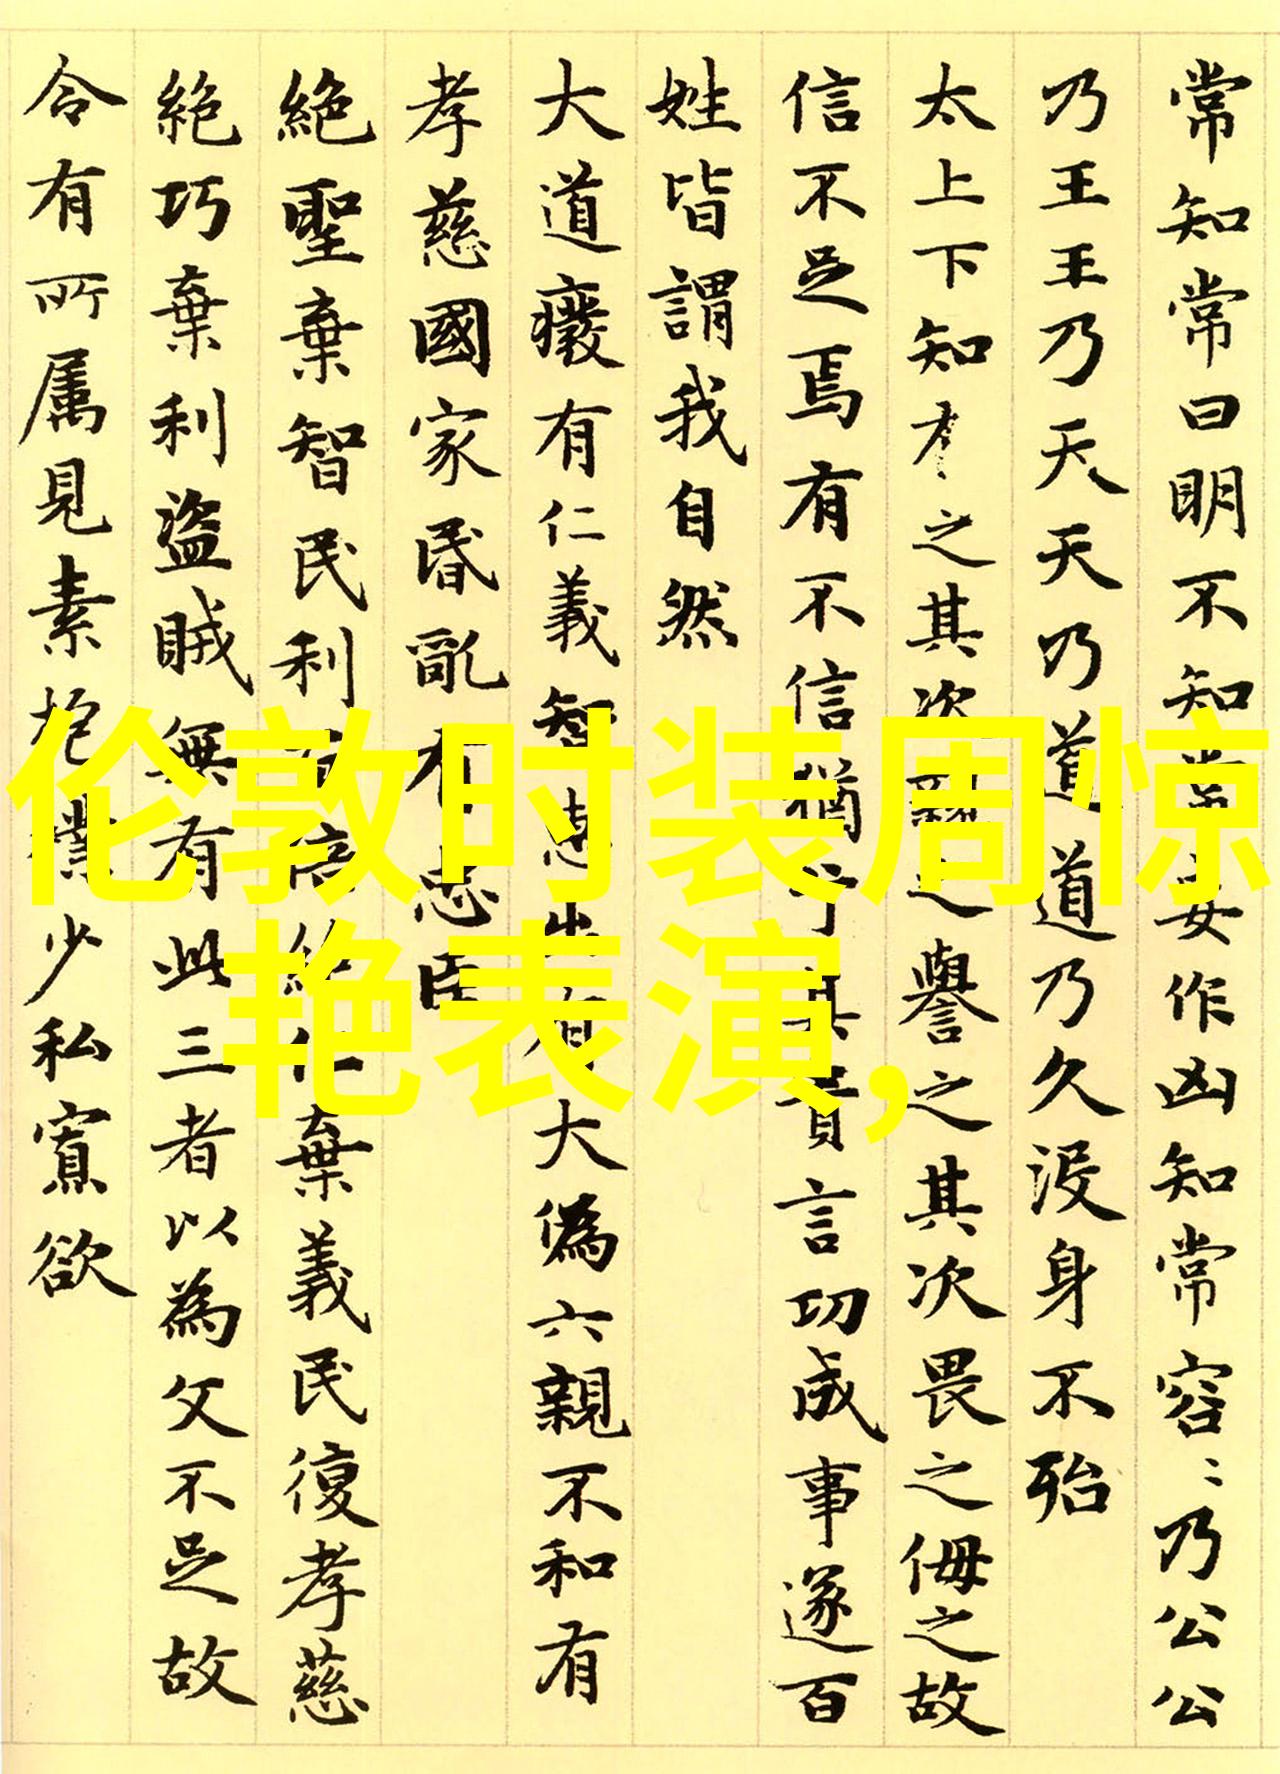 常知常曰明不知常妄作凶知常容〻乃公公
乃王王乃天天乃道道乃久没身不殆
太上下知有之其次親之譽之其次畏之侮之故
信不足焉有不信猶乎其貴言功成事遂百
姓皆謂我自然
大道癈有仁義智惠出有大偽六親不和有
孝慈國家昬亂有忠臣
絶聖棄智民利百倍絶仁棄義民復孝慈
絶巧棄利盗賊無有此三者以為文不足故
令有所属見素抱樸少私寡欲
伦敦时装周惊
艳表演,